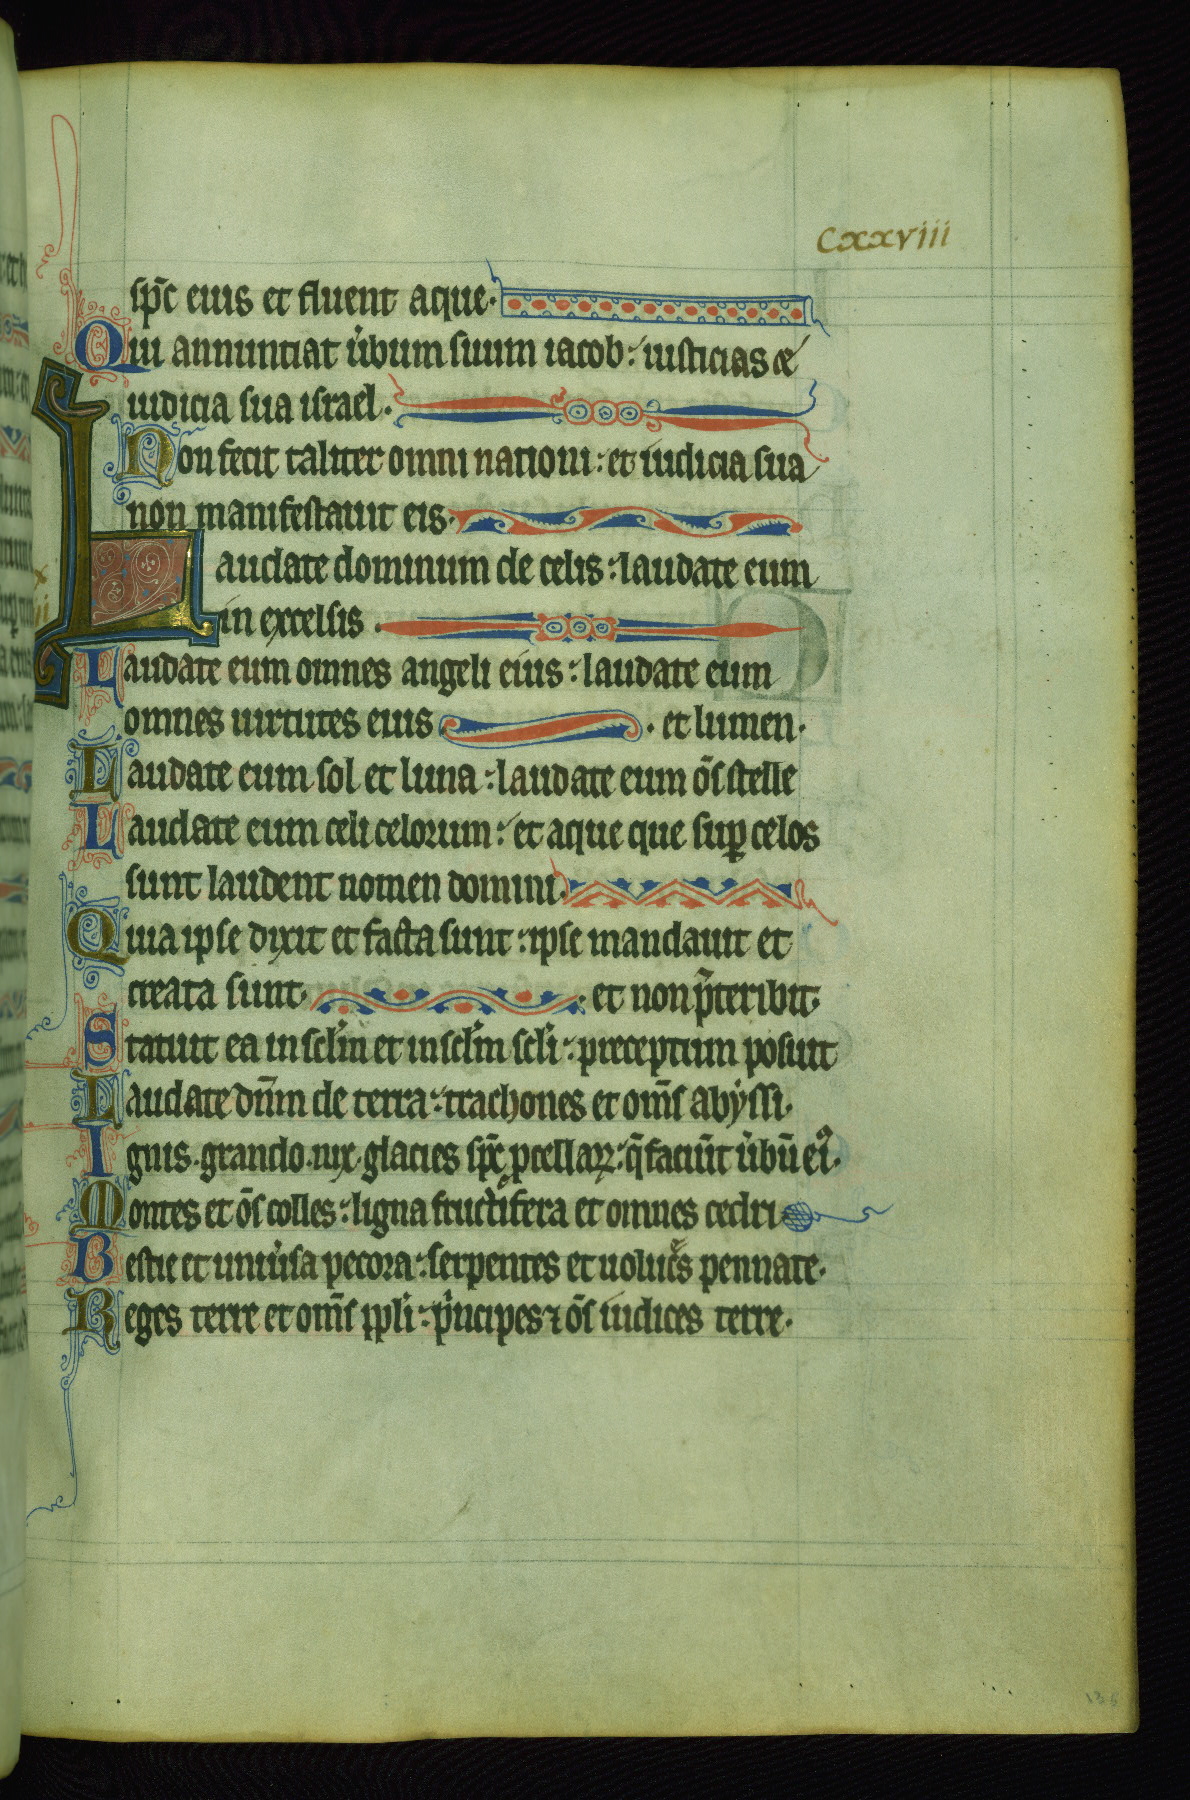 Cxxviii
sp̄c eius et fluent aque·
Qui annuntiat u̾bum suum iacob: iusticias et
iudicia sua israel·
Non fecit taliter omni nationi: et iudicia sua
non manifestauit eis·
Laudate dominum de celis: laudate eum
in excelsis·
Laudate eum omnes angeli eius: laudate eum
omnes uirtutes eius · et lumen·
Laudate eum sol et luna: laudate eum om̄s stelle
Laudate eum celi celorum: et aque que sup̱ celos
sunt laudent nomen domini·
Quia ipse dixit et facta sunt: ipse mandauit et
creata sunt· · et non p̄teribit·
Statuit ea in sclm̄ et in sclm̄ scli̅: preceptum posuit
Laudate dn̄m de terra: trachones et om̄s abyssi·
Ignis· grando· nix· glacies sp̄c ꝓcellaꝝ: q̄ faciūt u̾bū ei᾽·
Montes et ōs colles: ligna fructifera et omnes cedri
Bestie et uniu̾sa pecora: serpentes et uoluc̾s pennate·
Reges terre et om̄s ppl̄i: pͥncipes ⁊ ōs iudices terre·